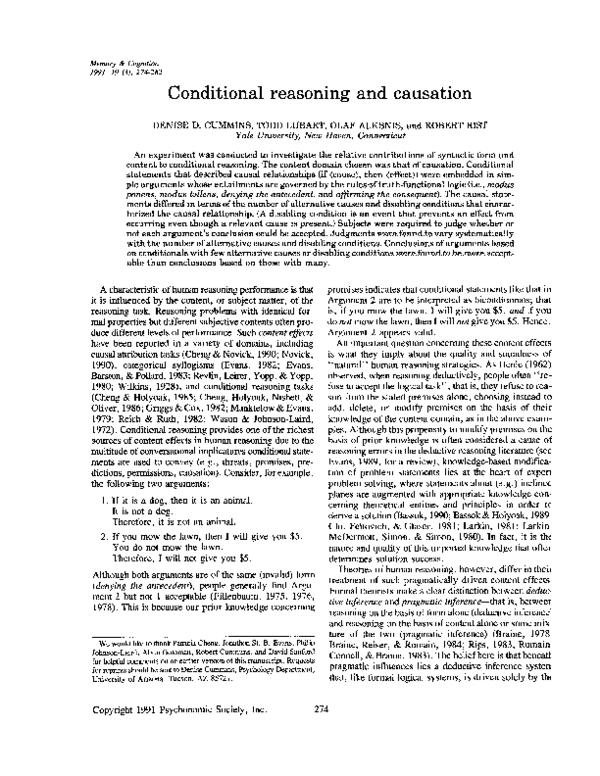 Memory & Cognition
1991, 19 (3), 274-282
Conditional reasoning and causation
DENISE D. CUMMINS, TODD LUBART, OLAF ALKSNIS, and ROBERT RIST
Yale University, New Haven, Connecticut
An experiment was conducted to investigate the relative contributions of syntactic form and
content to conditional reasoning. The content domain chosen was that of causation. Conditional
statements that described causal relationships (if ⟨cause⟩, then ⟨effect⟩) were embedded in sim-
ple arguments whose entailments are governed by the rules of truth-functional logic (i.e., modus
ponens, modus tollens, denying the antecedent, and affirming the consequent). The causal state-
ments differed in terms of the number of alternative causes and disabling conditions that charac-
terized the causal relationship. (A disabling condition is an event that prevents an effect from
occurring even though a relevant cause is present.) Subjects were required to judge whether or
not each argument's conclusion could be accepted. Judgments were found to vary systematically
with the number of alternative causes and disabling conditions. Conclusions of arguments based
on conditionals with few alternative causes or disabling conditions were found to be more accept-
able than conclusions based on those with many.
A characteristic of human reasoning performance is that
it is influenced by the content, or subject matter, of the
reasoning task. Reasoning problems with identical for-
mal properties but different subjective contents often pro-
duce different levels of performance. Such content effects
have been reported in a variety of domains, including
causal attribution tasks (Cheng & Novick, 1990; Novick,
1990), categorical syllogisms (Evans, 1982; Evans,
Barston, & Pollard, 1983; Revlin, Leirer, Yopp, & Yopp,
1980; Wilkins, 1928), and conditional reasoning tasks
(Cheng & Holyoak, 1985; Cheng, Holyoak, Nisbett, &
Oliver, 1986; Griggs & Cox, 1982; Manktelow & Evans,
1979; Reich & Ruth, 1982; Wason & Johnson-Laird,
1972). Conditional reasoning provides one of the richest
sources of content effects in human reasoning due to the
multitude of conversational implicatures conditional state-
ments are used to convey (e.g., threats, promises, pre-
dictions, permissions, causation). Consider, for example,
the following two arguments:
1. If it is a dog, then it is an animal.
It is not a dog.
Therefore, it is not an animal.
2. If you mow the lawn, then I will give you $5.
You do not mow the lawn.
Therefore, I will not give you $5.
Although both arguments are of the same (invalid) form
(denying the antecedent), people generally find Argu-
ment 2 but not 1 acceptable (Fillenbaum, 1975, 1976,
1978). This is because our prior knowledge concerning
We would like to thank Patricia Cheng, Jonathan St. B. Evans, Philip
Johnson-Laird, Alvin Goldman, Robert Cummins, and David Sanford
for helpful comments on an earlier version of this manuscript. Requests
for reprints should be sent to Denise Cummins, Psychology Department,
University of Arizona, Tucson, AZ 85721.
promises indicates that conditional statements like that in
Argument 2 are to be interpreted as biconditionals; that
is, if you mow the lawn, I will give you $5, and if you
do not mow the lawn, then I will not give you $5. Hence,
Argument 2 appears valid.
An important question concerning these content effects
is what they imply about the quality and soundness of
"natural" human reasoning strategies. As Henle (1962)
observed, when reasoning deductively, people often "re-
fuse to accept the logical task", that is, they refuse to rea-
son from the stated premises alone, choosing instead to
add, delete, or modify premises on the basis of their
knowledge of the content domain, as in the above exam-
ples. Although this propensity to modify premises on the
basis of prior knowledge is often considered a cause of
reasoning errors in the deductive reasoning literature (see
Evans, 1989, for a review), knowledge-based modifica-
tion of problem statements lies at the heart of expert
problem solving, where statements about (e.g.) inclined
planes are augmented with appropriate knowledge con-
cerning theoretical entities and principles in order to
derive a solution (Bassok, 1990; Bassok & Holyoak, 1989
Chi, Feltovich, & Glaser, 1981; Larkin, 1981; Larkin
McDermott, Simon, & Simon, 1980). In fact, it is the
nature and quality of this imported knowledge that often
determines solution success.
Theories of human reasoning, however, differ in their
treatment of such pragmatically driven content effects.
Formal theorists make a clear distinction between deduc-
tive inference and pragmatic inference—that is, between
reasoning on the basis of form alone (deductive inference
and reasoning on the basis of content alone or some mix-
ture of the two (pragmatic inference) (Braine, 1978
Braine, Reiser, & Rumain, 1984; Rips, 1983, Rumain
Connell, & Braine, 1983). The belief here is that beneath
pragmatic influences lies a deductive inference system
that, like formal logical systems, is driven solely by the
Copyright 1991 Psychonomic Society, Inc.
274